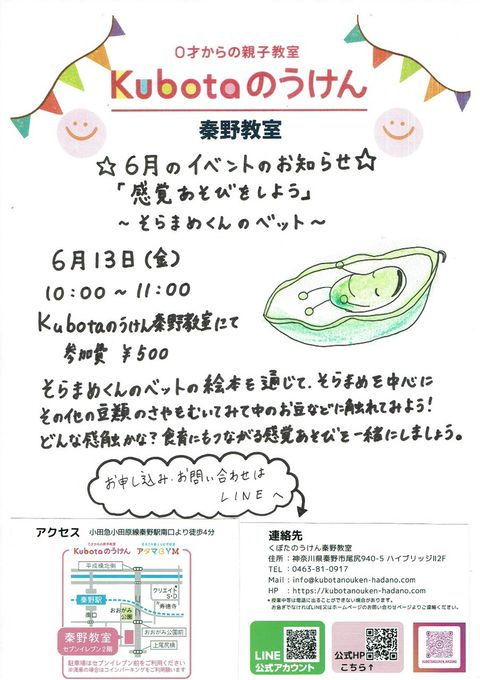 0才からの親子教室
Kubotaのうけん
秦野教室
☆6月のイベントのお知らせ☆
「感覚あそびをしよう」
～そらまめくんのベット～
6月13日(金)
10:00～11:00
Kubotaのうけん秦野教室にて
参加費 ¥500
そらまめくんのベットの絵本を通じて、そらまめを中心に
その他の豆類のさやもむいてみて中のお豆などに触れてみよう！
どんな感触かな？食育にもつながる感覚あそびを一緒にしましょう。
お申し込み・お問い合わせは
LINEへ
アクセス 小田急小田原線秦野駅南口より徒歩4分
Kubotaのうけん アタマGYM
平成橋北側
秦野駅
おおがみ公園
クリエイトS・D
寿徳寺
秦野教室
セブンイレブン2階
おおがみ公園前
上尾尻橋
駐車場はセブンイレブン前をご利用ください
※満車の場合はコインパーキングをご利用願います
連絡先
くぼたのうけん秦野教室
住所：神奈川県秦野市尾尻940-5 ハイブリッジII2F
TEL：0463-81-0917
Mail：info@kubotanouken-hadano.com
HP：https://kubotanouken-hadano.com
※授業中等は電話に出ることができない場合があります。
お急ぎでなければLINE又はホームページのお問い合わせページよりご連絡ください。
LINE
公式アカウント
公式HP
こちら↑